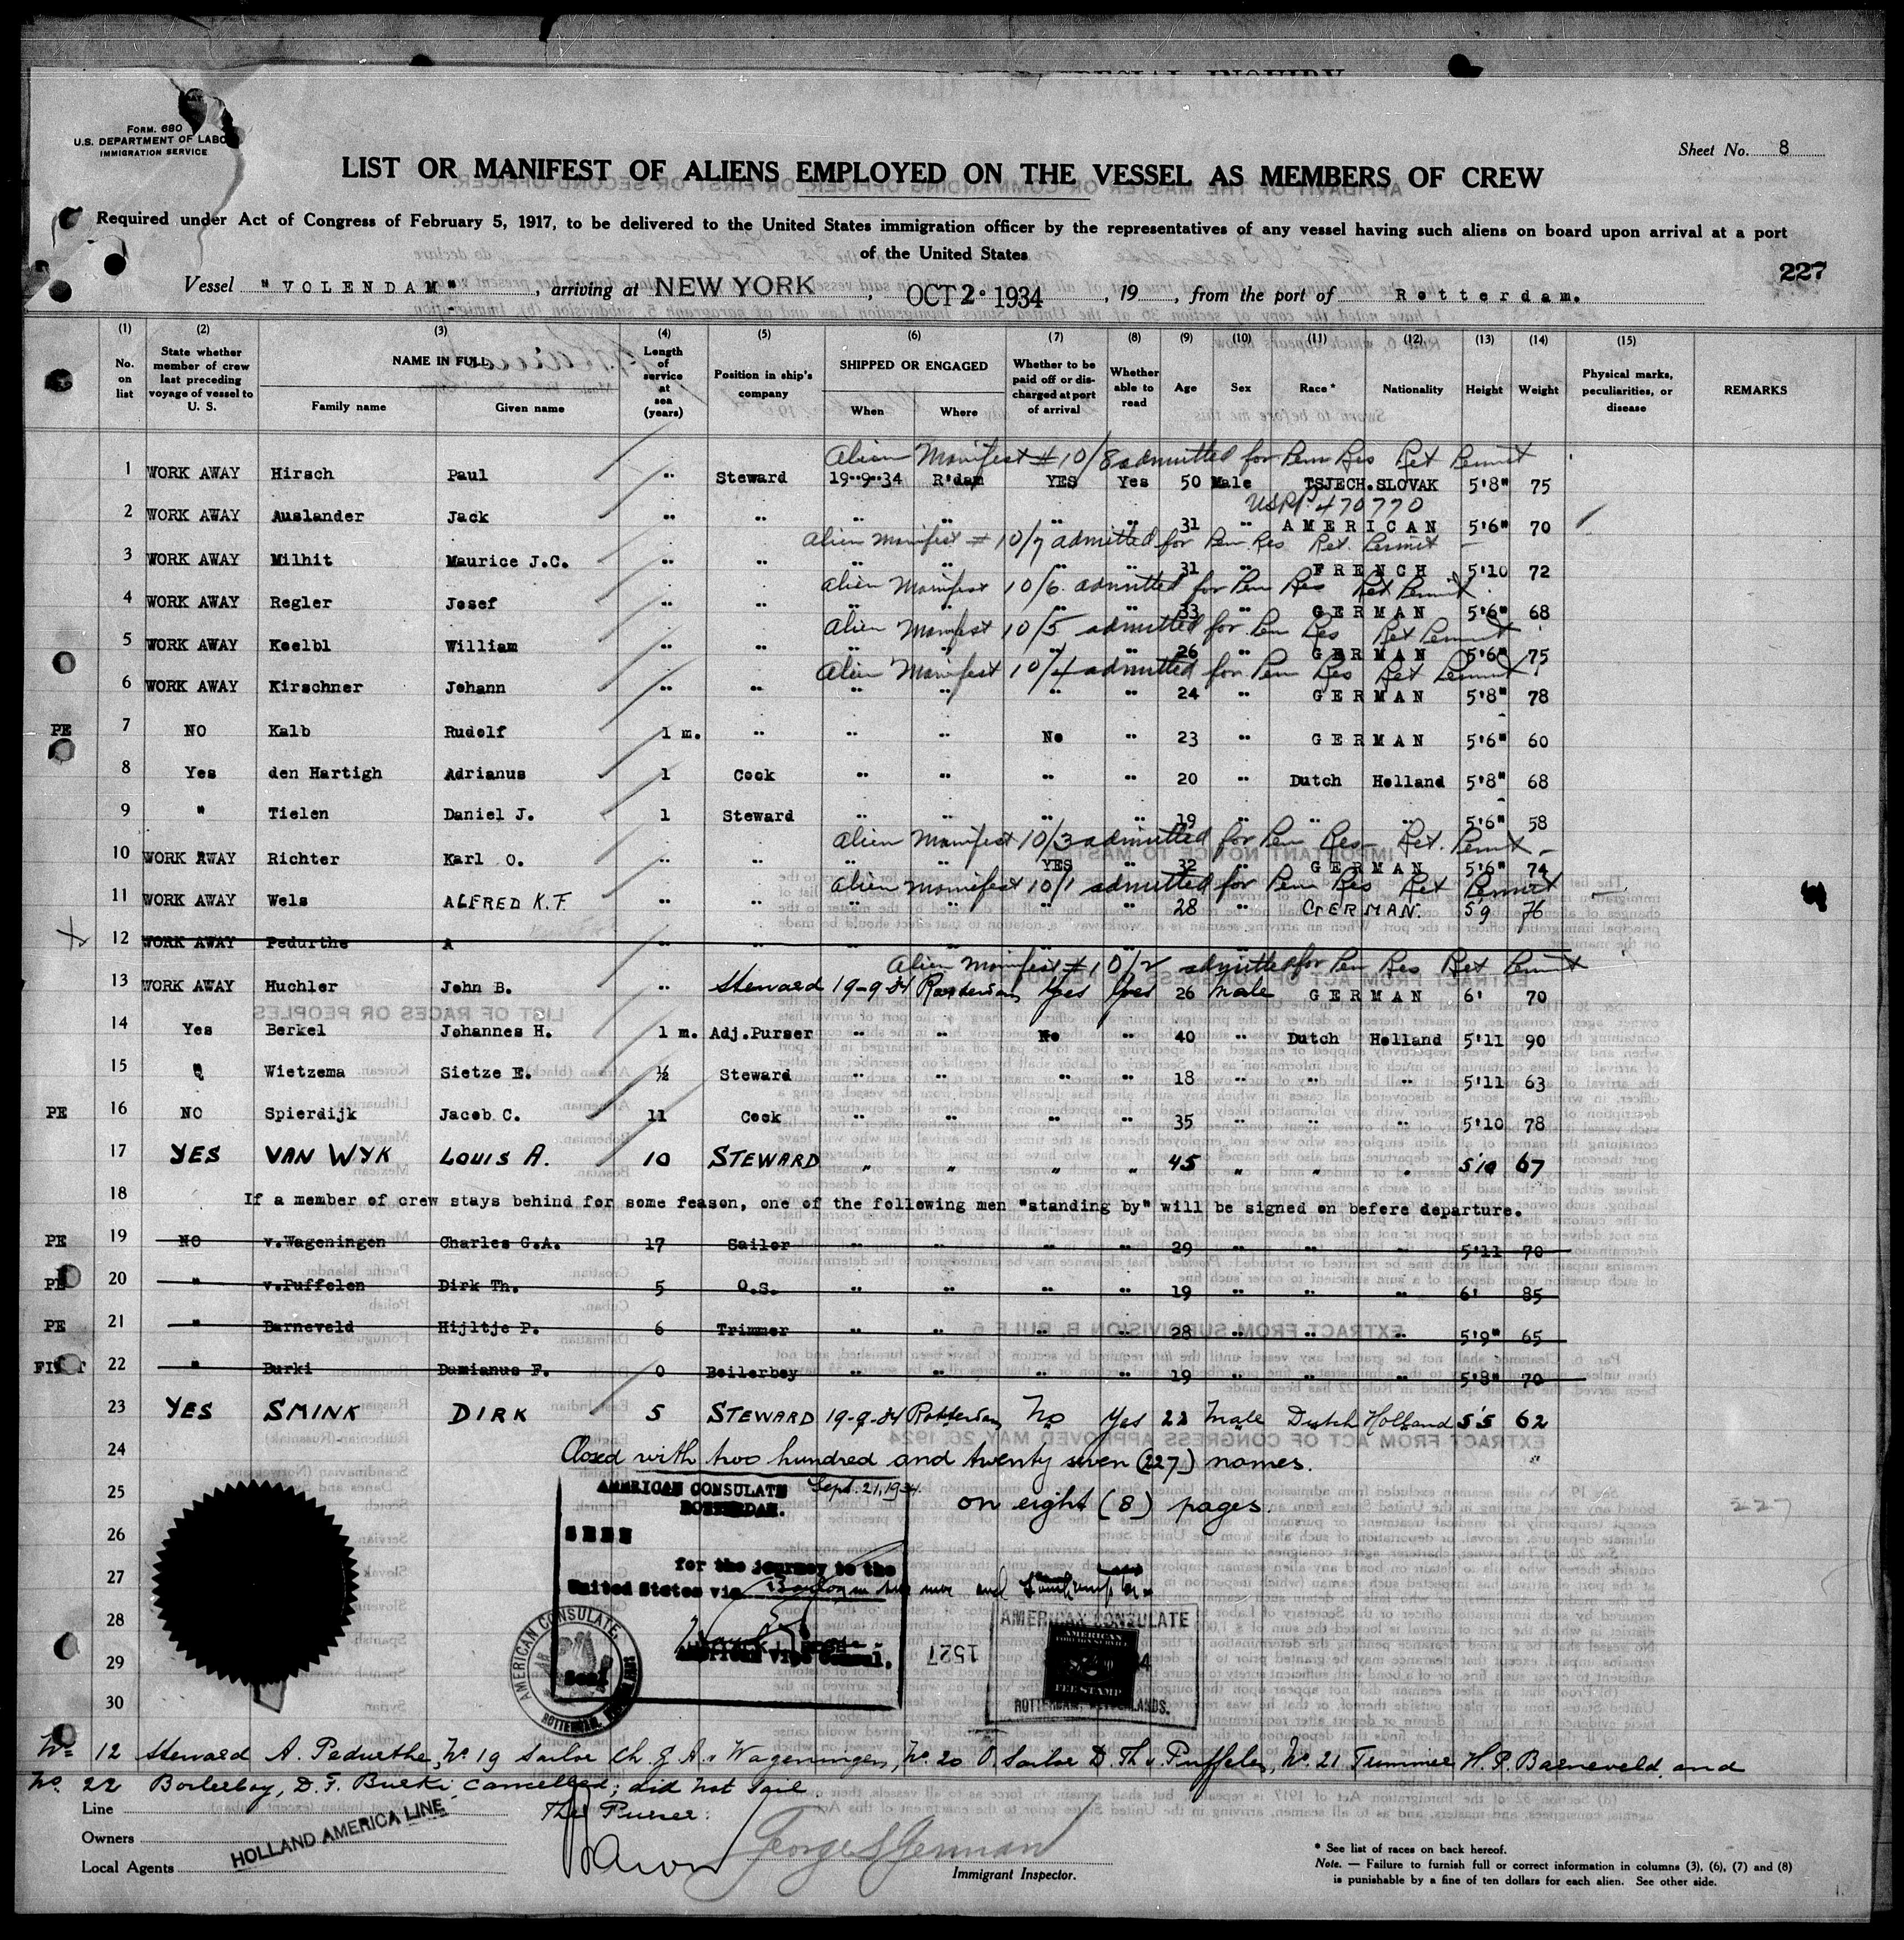 FORM. 680
U.S. DEPARTMENT OF LABO
IMMIGRATION SERVICE
Sheet No. 8
LIST OR MANIFEST OF ALIENS EMPLOYED ON THE VESSEL AS MEMBERS OF CREW
Required under Act of Congress of February 5, 1917, to be delivered to the United States immigration officer by the representatives of any vessel having such aliens on board upon arrival at a port
of the United States
227
Vessel "VOLENDAM", arriving at NEW YORK, OCT 2· 1934, 19, from the port of Rotterdam.
(1) (2) (3) (4) (5) (6) (7) (8) (9) (10) (11) (12) (13) (14) (15)
No. on list State whether member of crew last preceding voyage of vessel to U. S. NAME IN FULL Family name Given name Length of service at sea (years) Position in ship's company SHIPPED OR ENGAGED When Where Whether to be paid off or discharged at port of arrival Whether able to read Age Sex Race* Nationality Height Weight Physical marks, peculiarities, or disease REMARKS
Alien Manifest # 10/8 admitted for Perm Res Ret Permit
1 WORK AWAY Hirsch Paul " Steward 19-9-34 R'dam YES Yes 50 Male TSJECH.SLOVAK 5'8" 75
USPP 470770
2 WORK AWAY Auslander Jack " " " " " " 31 " AMERICAN 5'6" 70
Alien Manifest # 10/7 admitted for Perm Res Ret. Permit
3 WORK AWAY Milhit Maurice J.C. " " " " " " 31 " FRENCH 5'10 72
Alien Manifest 10/6 admitted for Perm Res Ret Permit
4 WORK AWAY Regler Josef " " " " " " 33 " GERMAN 5'6" 68
Alien Manifest 10/5 admitted for Perm Res Ret Permit
5 WORK AWAY Koelbl William " " " " " " 26 " GERMAN 5'6" 75
Alien Manifest 10/4 admitted for Perm Res Ret Permit
6 WORK AWAY Kirschner Johann " " " " " " 24 " GERMAN 5'8" 78
PE 7 NO Kalb Rudolf 1 m. " " " No " 23 " GERMAN 5'6" 60
8 Yes den Hartigh Adrianus 1 Cook " " " " 20 " Dutch Holland 5'8" 68
9 " Tielen Daniel J. 1 Steward " " " " 19 " " " 5'6" 58
Alien Manifest 10/3 admitted for Perm Res Ret. Permit
10 WORK AWAY Richter Karl O. " " " " YES " 32 " GERMAN 5'6" 74
Alien Manifest 10/1 admitted for Perm Res Ret Permit
11 WORK AWAY Wels ALFRED K.F. " " " " " " 28 " GERMAN. 5'9 76
12 WORK AWAY Pedurthe A " " " " " "
Alien Manifest # 10/2 admitted for Perm Res Ret Permit
13 WORK AWAY Huchler John B. " Steward 19-9-34 Rotterdam Yes Yes 26 Male GERMAN 6' 70
14 Yes Berkel Johannes H. 1 m. Adj.Purser " " No " 40 " Dutch Holland 5'11 90
15 " Wietzema Sietze E. ½ Steward " " " " 18 " " " 5'11 63
PE 16 NO Spierdijk Jacob C. 11 Cook " " " " 35 " " " 5'10 78
17 YES VAN WYK LOUIS A. 10 STEWARD " " " " 45 " " " 5'10 67
18 If a member of crew stays behind for some reason, one of the following men "standing by" will be signed on before departure.
PE 19 NO v.Wageningen Charles G.A. 17 Sailor " " " " 29 " " " 5'11 70
PE 20 " v.Puffelen Dirk Th. 5 O.S. " " " " 19 " " " 6' 85
PE 21 " Barneveld Hijltje P. 6 Trimmer " " " " 28 " " " 5'9" 65
22 " Burki Damianus F. 0 Boilerboy " " " " 19 " " " 5'8" 70
23 YES SMINK DIRK 5 STEWARD 19-9-34 Rotterdam No Yes 22 Male Dutch Holland 5'5 62
24 Closed with two hundred and twenty seven (227) names.
25 AMERICAN CONSULATE Sept. 21, 1934. on eight (8) pages.
ROTTERDAM.
227
26 SEEN
for the journey to the
27 United States via
28 AMERICAN CONSULATE
American Vice Consul.
Seal
1527
AMERICAN CONSULATE
AMERICAN FOREIGN SERVICE
FEE STAMP
ROTTERDAM, NETHERLANDS.
29
30
No 12 Steward A. Pedurthe, No. 19 Sailor Ch. G. A. v Wageningen, No. 20 O. Sailor D. Th v Puffelen, No. 21 Trimmer H. P. Barneveld, and
No. 22 Boilerboy, D. F. Burki cancelled; did not sail.
The Purser:
Line
Owners
HOLLAND AMERICA LINE
Local Agents
George S German
Immigrant Inspector.
* See list of races on back hereof.
Note. — Failure to furnish full or correct information in columns (3), (6), (7) and (8)
is punishable by a fine of ten dollars for each alien. See other side.